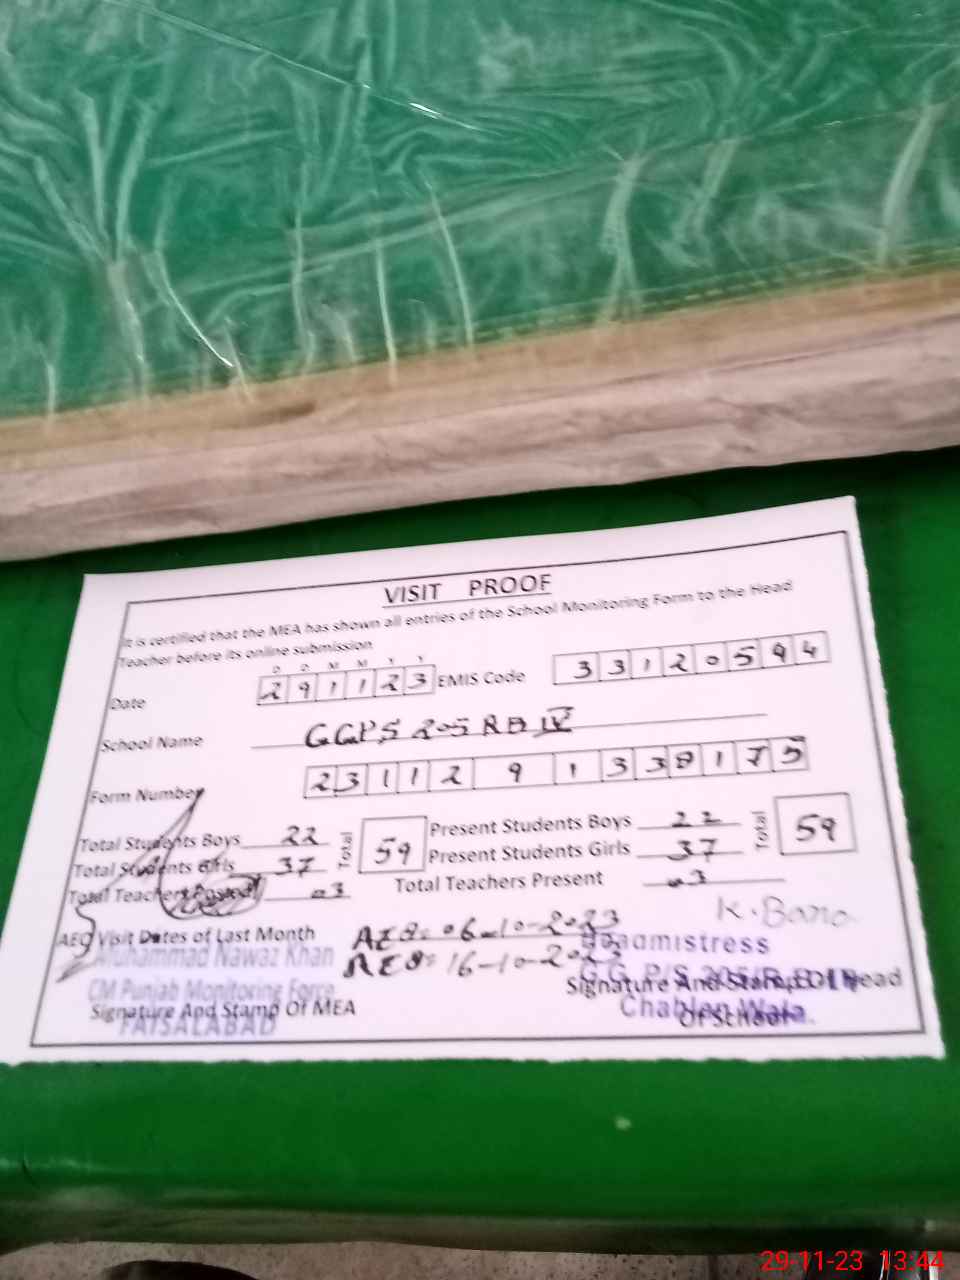 VISIT PROOF
It is certified that the MEA has shown all entries of the School Monitoring Form to the Head
Teacher before its online submission
D D M M Y Y
Date 2 9 1 1 2 3 EMIS Code 3 3 1 2 0 5 9 4
School Name GGPS 205 RB IV
Form Number 2 3 1 1 2 9 1 3 3 8 1 7 5
Total Students Boys 22 Total 59 Present Students Boys 22 Total 59
Total Students Girls 37 Present Students Girls 37
Total Teachers Posted 03 Total Teachers Present 03
K. Bano
AEO Visit Dates of Last Month AEO: 06-10-2023
AEO: 16-10-2023
Muhammad Nawaz Khan
CM Punjab Monitoring Force
FAISALABAD
Signature And Stamp Of MEA
Headmistress
G.G.P/S 205/R.B
Chablen Wala
Signature And Stamp Of Head
Of School
29-11-23 13:44